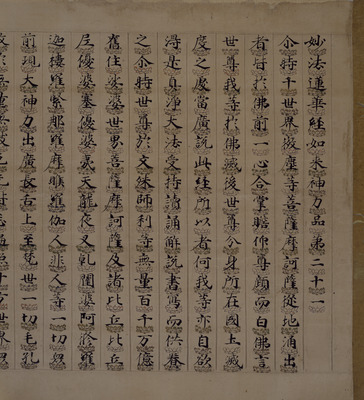 妙法蓮華經如來神力品第二十一
尒時千世界微塵等菩薩摩訶薩從地涌出
者皆於佛前一心合掌瞻仰尊顏而白佛言
世尊我等於佛滅後世尊分身所在國土滅
度之處當廣說此經所以者何我等亦自欲
得是真淨大法受持讀誦解說書寫而供養
之尒時世尊於文殊師利等無量百千万億
舊住娑婆世界菩薩摩訶薩及諸比丘比丘
尼優婆塞優婆夷天龍夜叉乾闥婆阿脩羅
迦樓羅緊那羅摩睺羅伽人非人等一切眾
前現大神力出廣長舌上至梵世一切毛孔